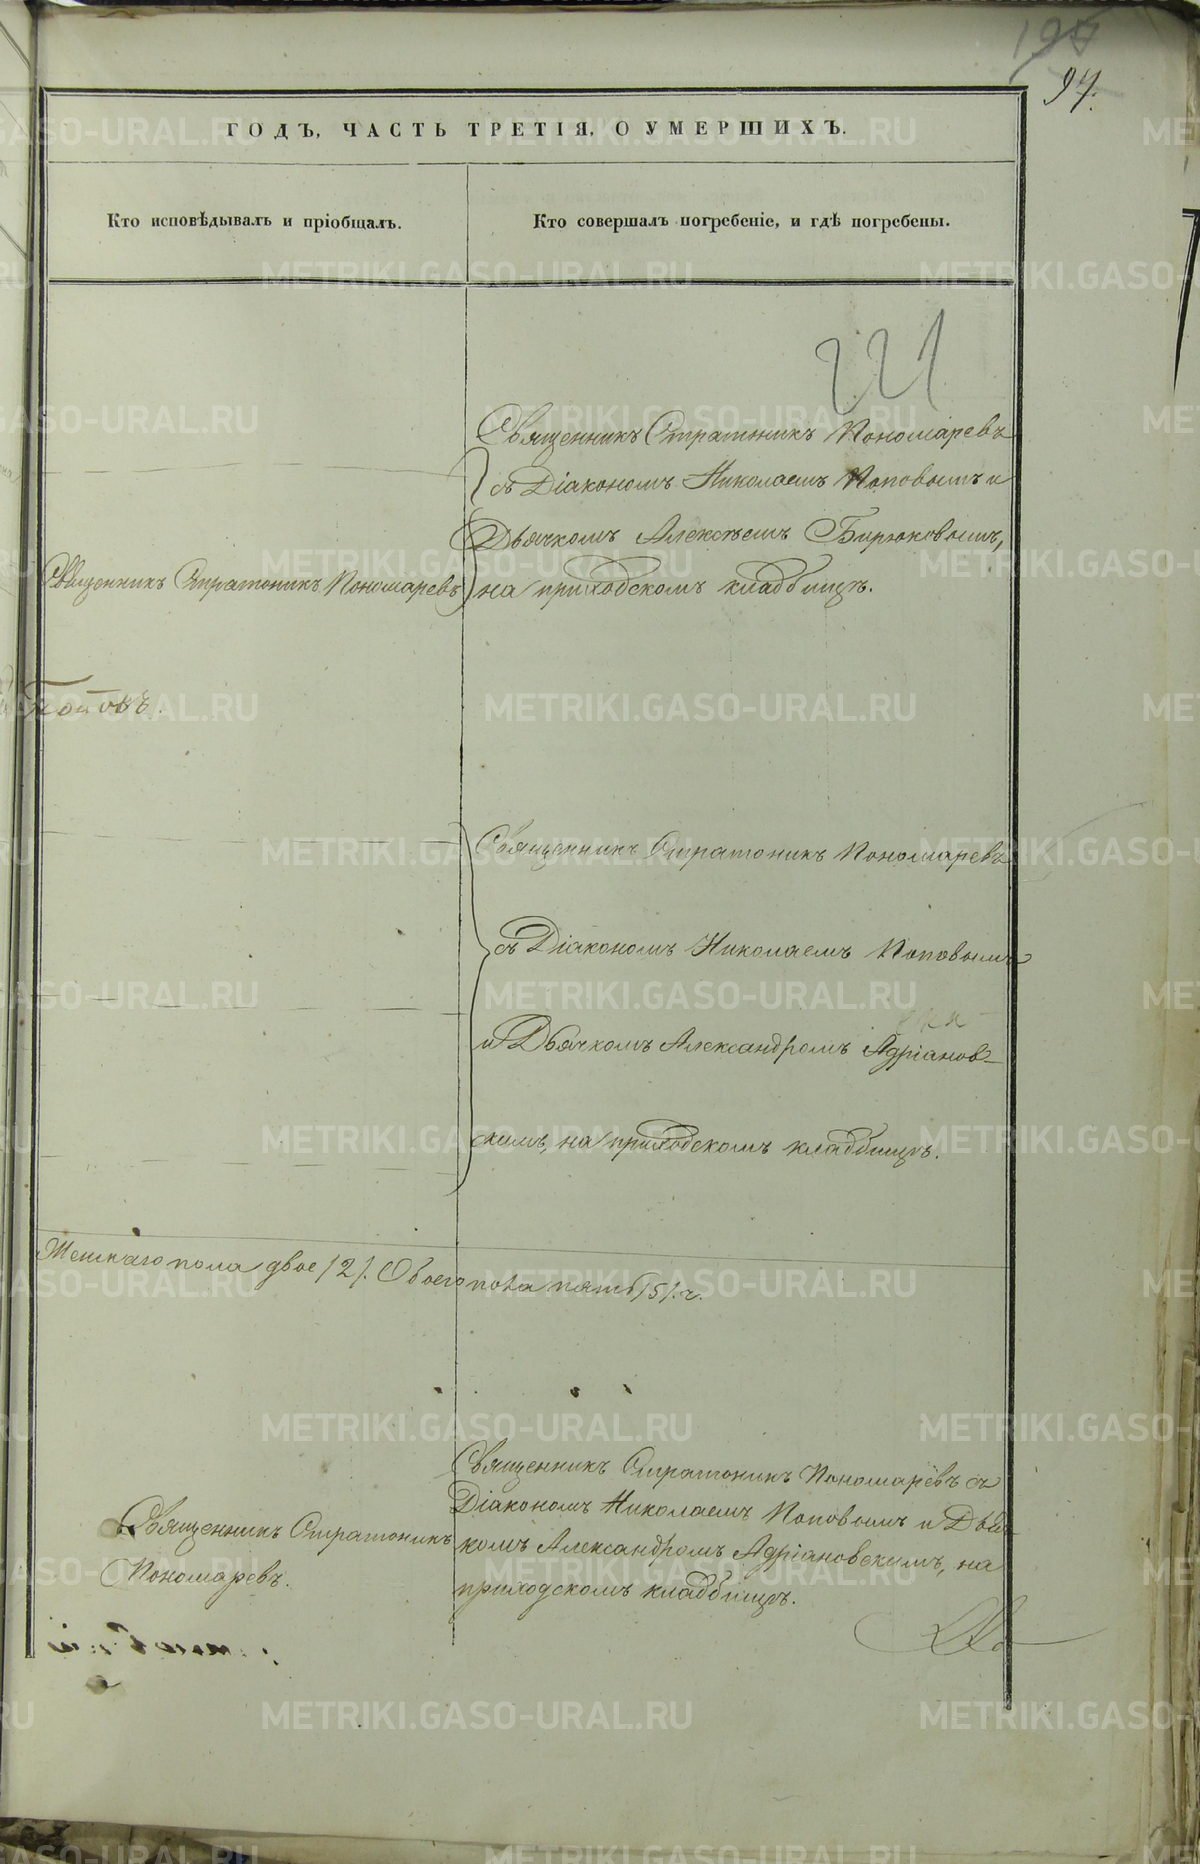 197
97.
ГОДЪ, ЧАСТЬ ТРЕТІЯ, О УМЕРШИХЪ.
Кто исповѣдывалъ и пріобщалъ.
Кто совершалъ погребеніе, и гдѣ погребены.
221
Священникъ Стратоникъ Пономаревъ
съ Діакономъ Николаемъ Поповымъ и
Дьячкомъ Алексѣемъ Бирюковымъ,
на приходскомъ кладбищѣ.
Священникъ Стратоникъ Пономаревъ
Поповъ.
Священникъ Стратоникъ Пономаревъ
съ Діакономъ Николаемъ Поповымъ
и Дьячкомъ Александромъ Адріанов-
скимъ, на приходскомъ кладбищѣ.
Женскаго пола двое /2/. Обоего пола пять /5/. ч.
Священникъ Стратоникъ Пономаревъ съ
Діакономъ Николаемъ Поповымъ и Дья-
комъ Александромъ Адріановскимъ, на
приходскомъ кладбищѣ.
Священникъ Стратоникъ
Пономаревъ.
METRIKI.GASO-URAL.RU